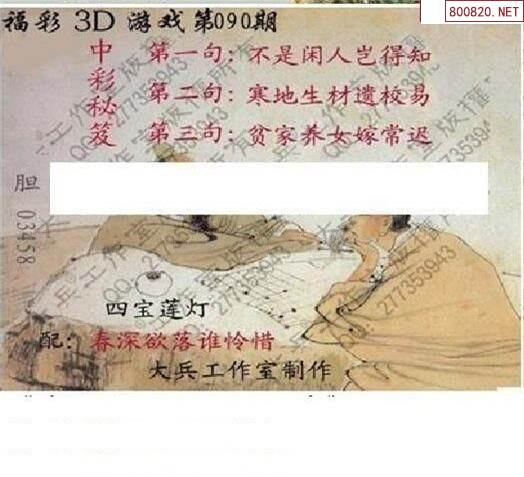 800820.NET
福彩 3D 游戏 第090期
中彩秘笈
第一句: 不是闲人岂得知
第二句: 寒地生材遗校易
第三句: 贫家养女嫁常迟
胆 03458
四宝莲灯
配: 春深欲落谁怜惜
大兵工作室制作
大兵工作室版权所有
QQ: 277353943